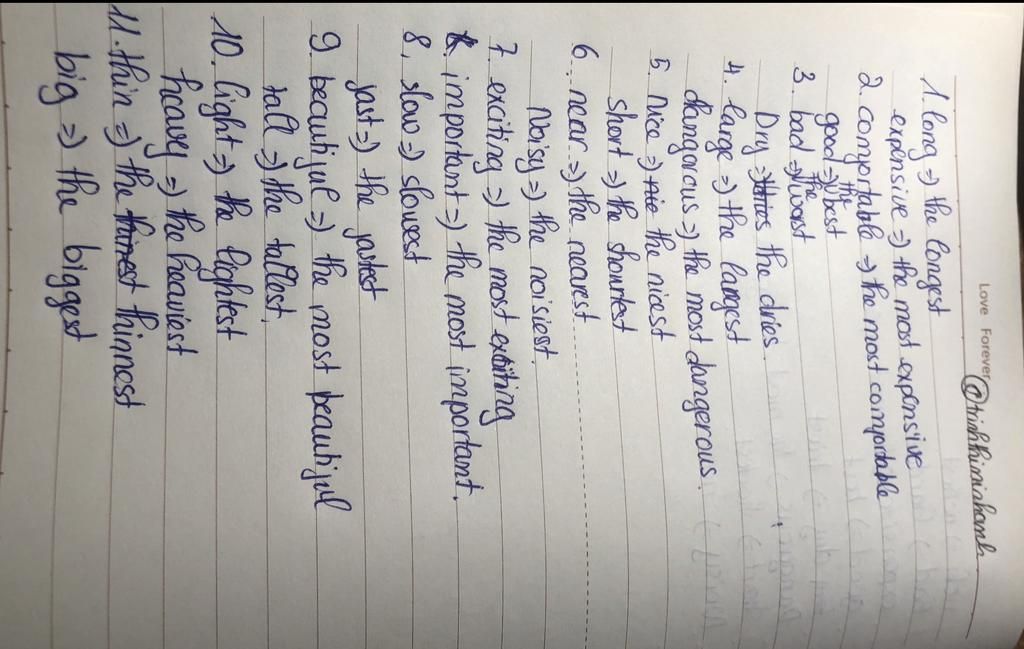 Love Forever
@trinhthiminhanh.
1. long => the longest
expensive => the most expensive
2. comportable => the most comportable
good => the best
3. bad => the worst
Dry => the dries.
4. large => the largest
dangarous => the most dangerous.
5. nice => the nicest
short => the shourtest
6. near => the nearest
Noisy => the noisiest.
7. exciting => the most exciting
important => the most important.
8. slow => slowest
jast => the jastest
9. beautijul => the most beautijul
tall => the tallest.
10. light => the lightest
heavey => the heaviest
11. thin => the thinnest
big => the biggest